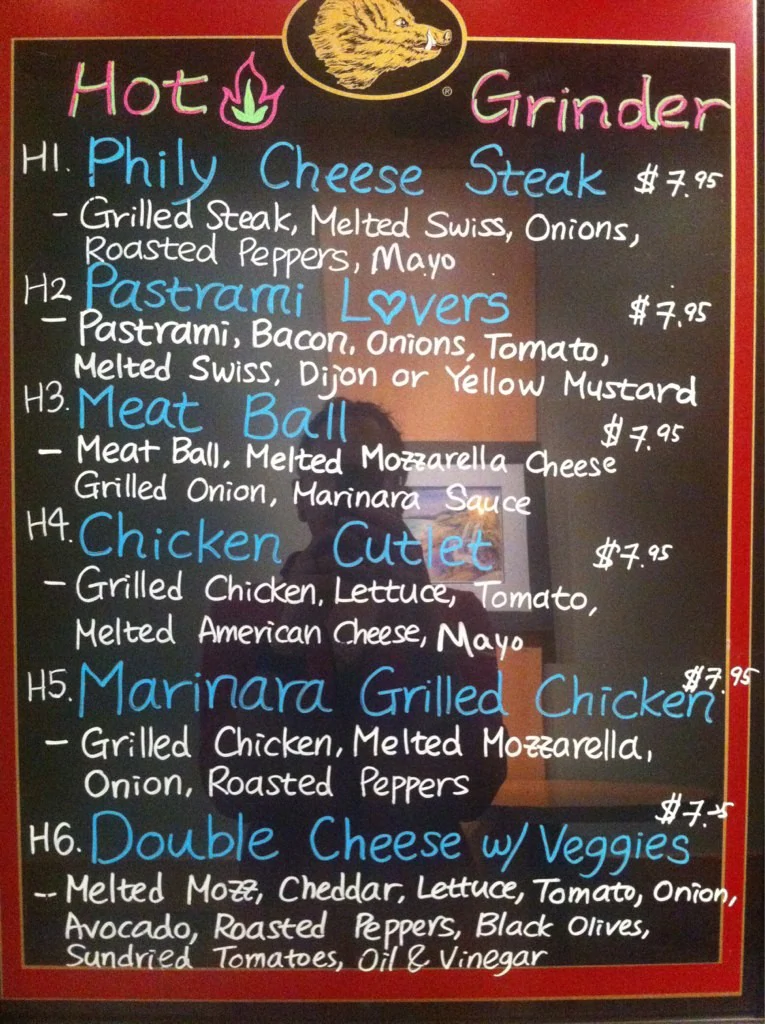 Hot Grinder
®
H1. Phily Cheese Steak $7.95
- Grilled Steak, Melted Swiss, Onions,
Roasted Peppers, Mayo
H2 Pastrami L♡vers $7.95
- Pastrami, Bacon, Onions, Tomato,
Melted Swiss, Dijon or Yellow Mustard
H3. Meat Ball $7.95
- Meat Ball, Melted Mozzarella Cheese
Grilled Onion, Marinara Sauce
H4. Chicken Cutlet $7.95
- Grilled Chicken, Lettuce, Tomato,
Melted American Cheese, Mayo
H5. Marinara Grilled Chicken $7.95
- Grilled Chicken, Melted Mozzarella,
Onion, Roasted Peppers
H6. Double Cheese w/ Veggies
-- Melted Mozz, Cheddar, Lettuce, Tomato, Onion,
Avocado, Roasted Peppers, Black Olives,
Sundried Tomatoes, Oil & Vinegar